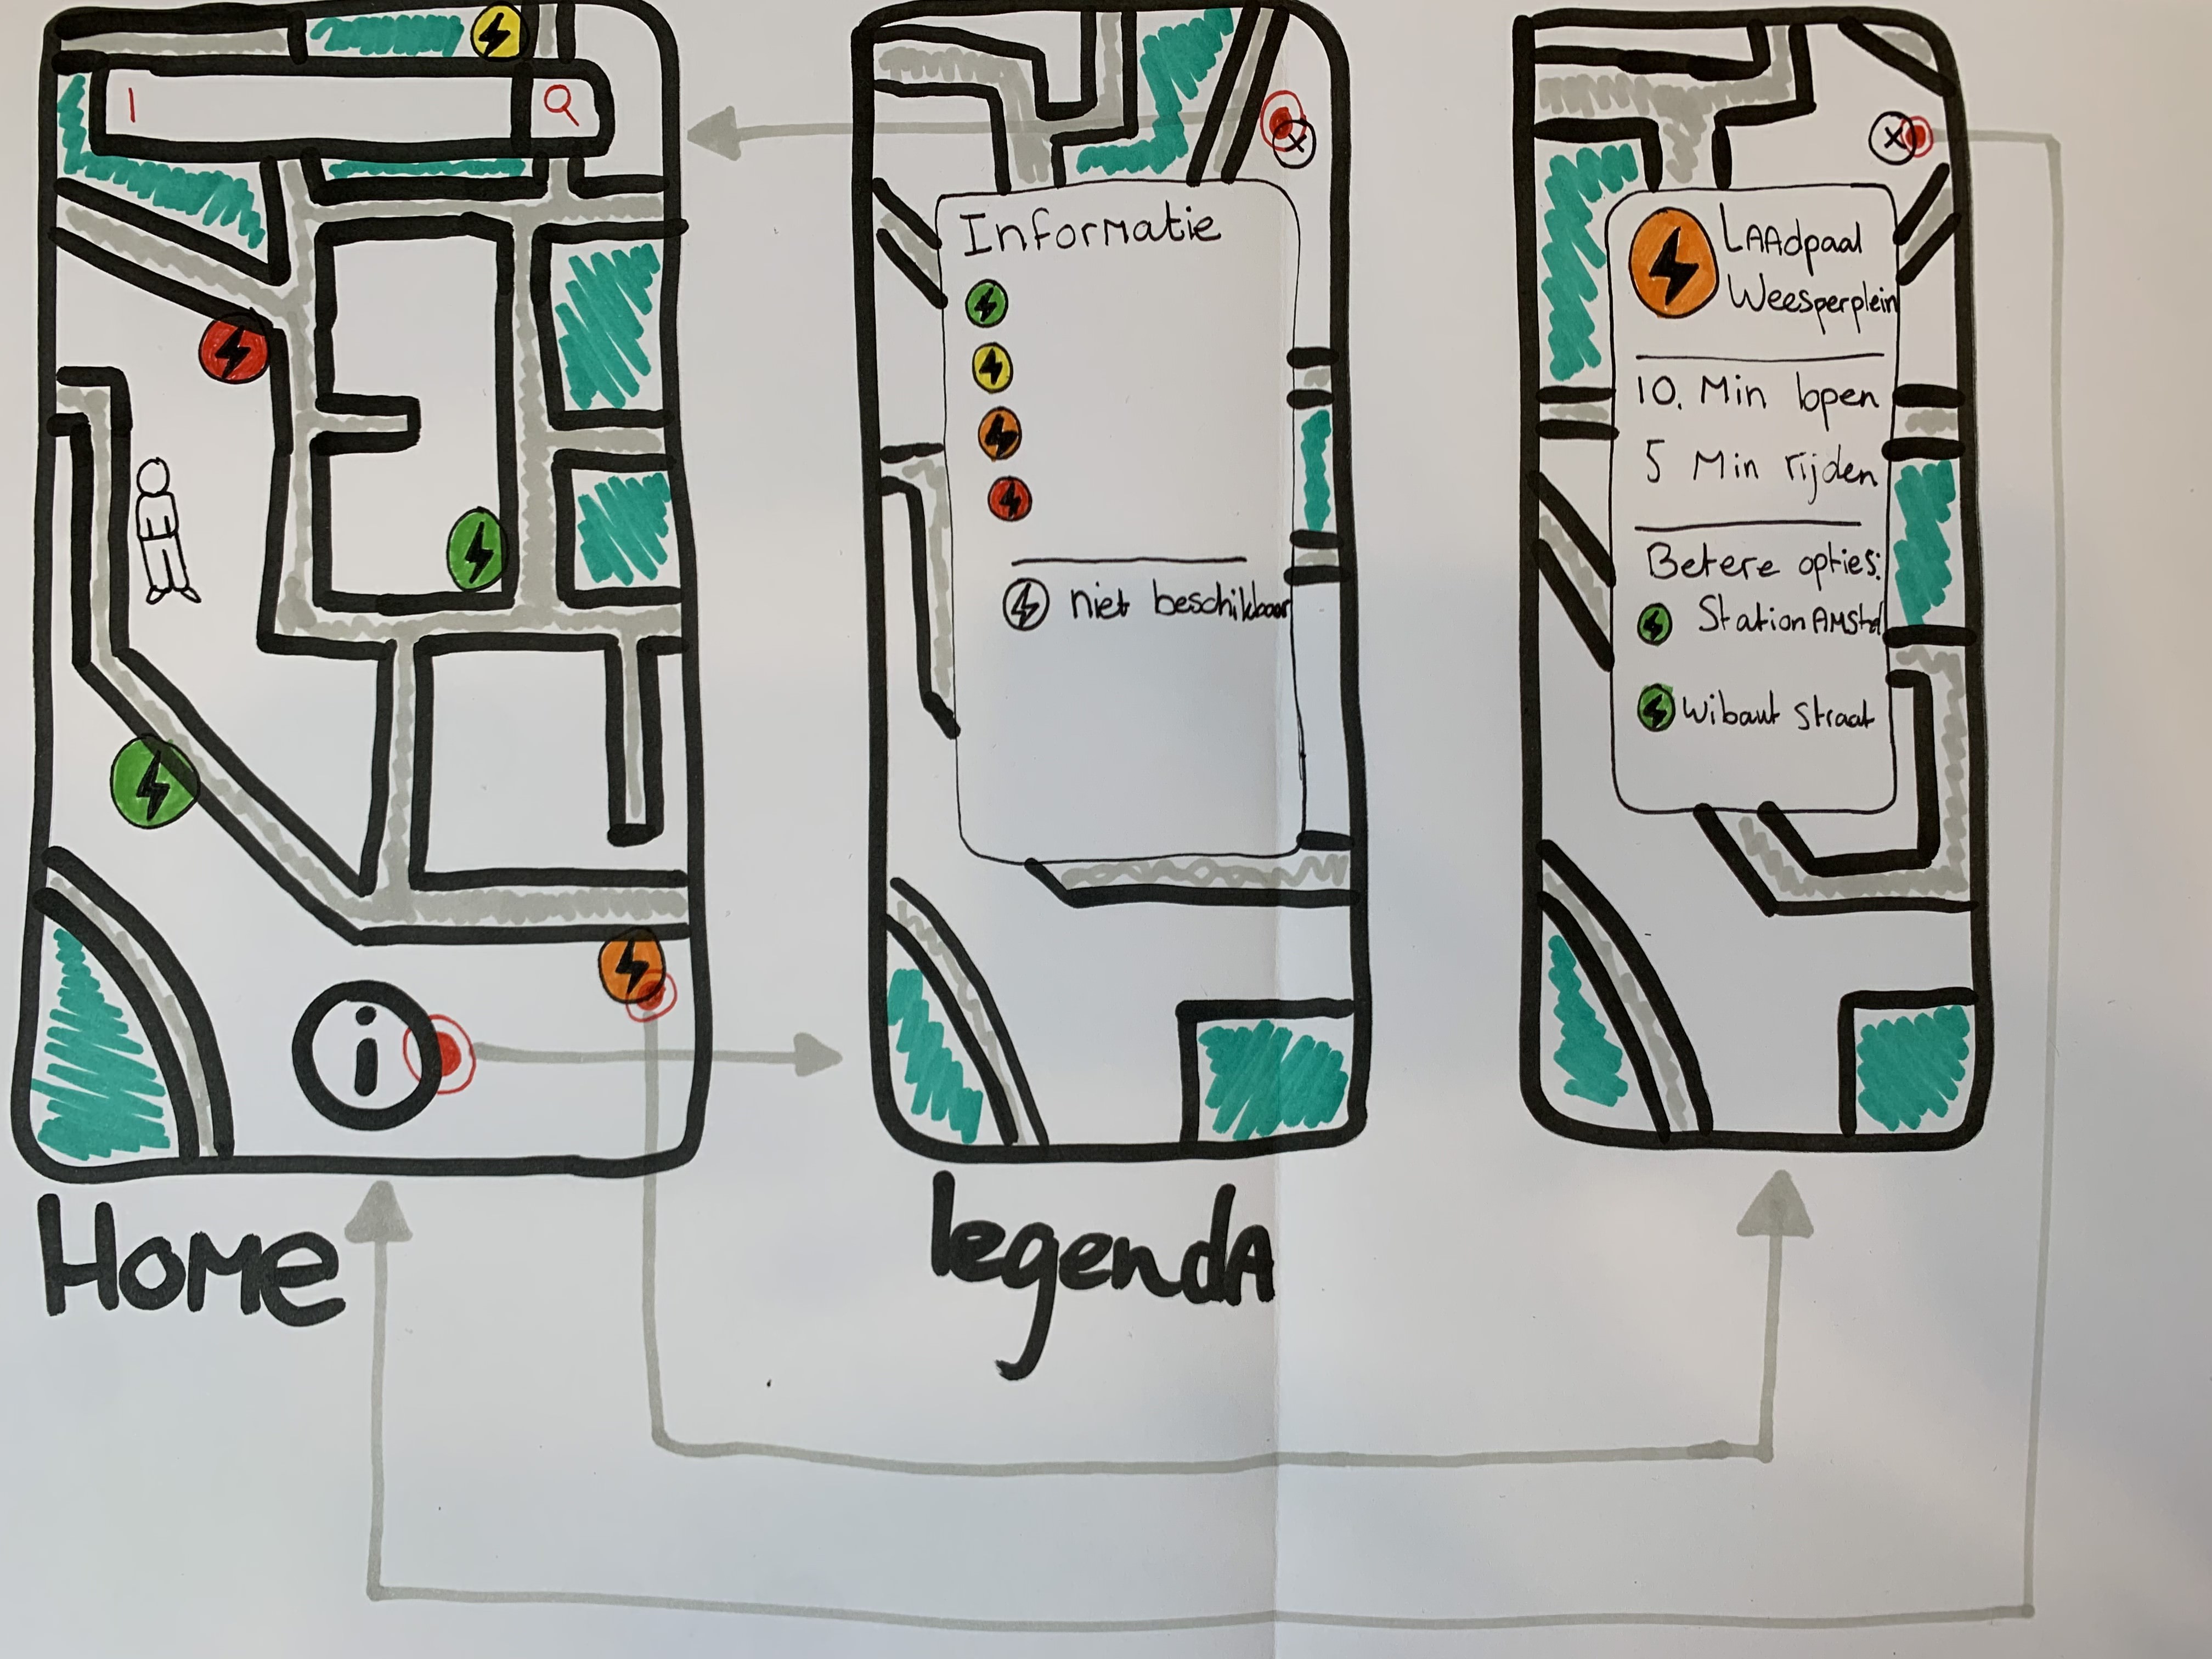 i
Home
Informatie
niet beschikbaar
legendA
LAAdpaal
Weesperplein
10. Min lopen
5 Min rijden
Betere opties:
Station AMstel
Wibaut straat